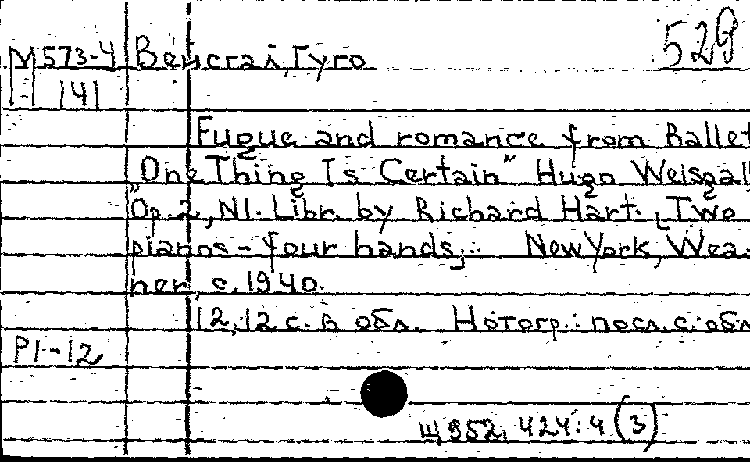 529
М573-4 Вейсгал, Гуго
141
Fugue and romance from Ballet
„One Thing Is Certain" Hugo Weisgal
Op. 2, N1. Libr. by Richard Hart. [Two
pianos - four hands]. New York, Wea-
ner, c. 1940.
12, 12 с. в обл. Нотогр.: посл. с. обл
P1-12
Ш, 952, 424:4 (3)